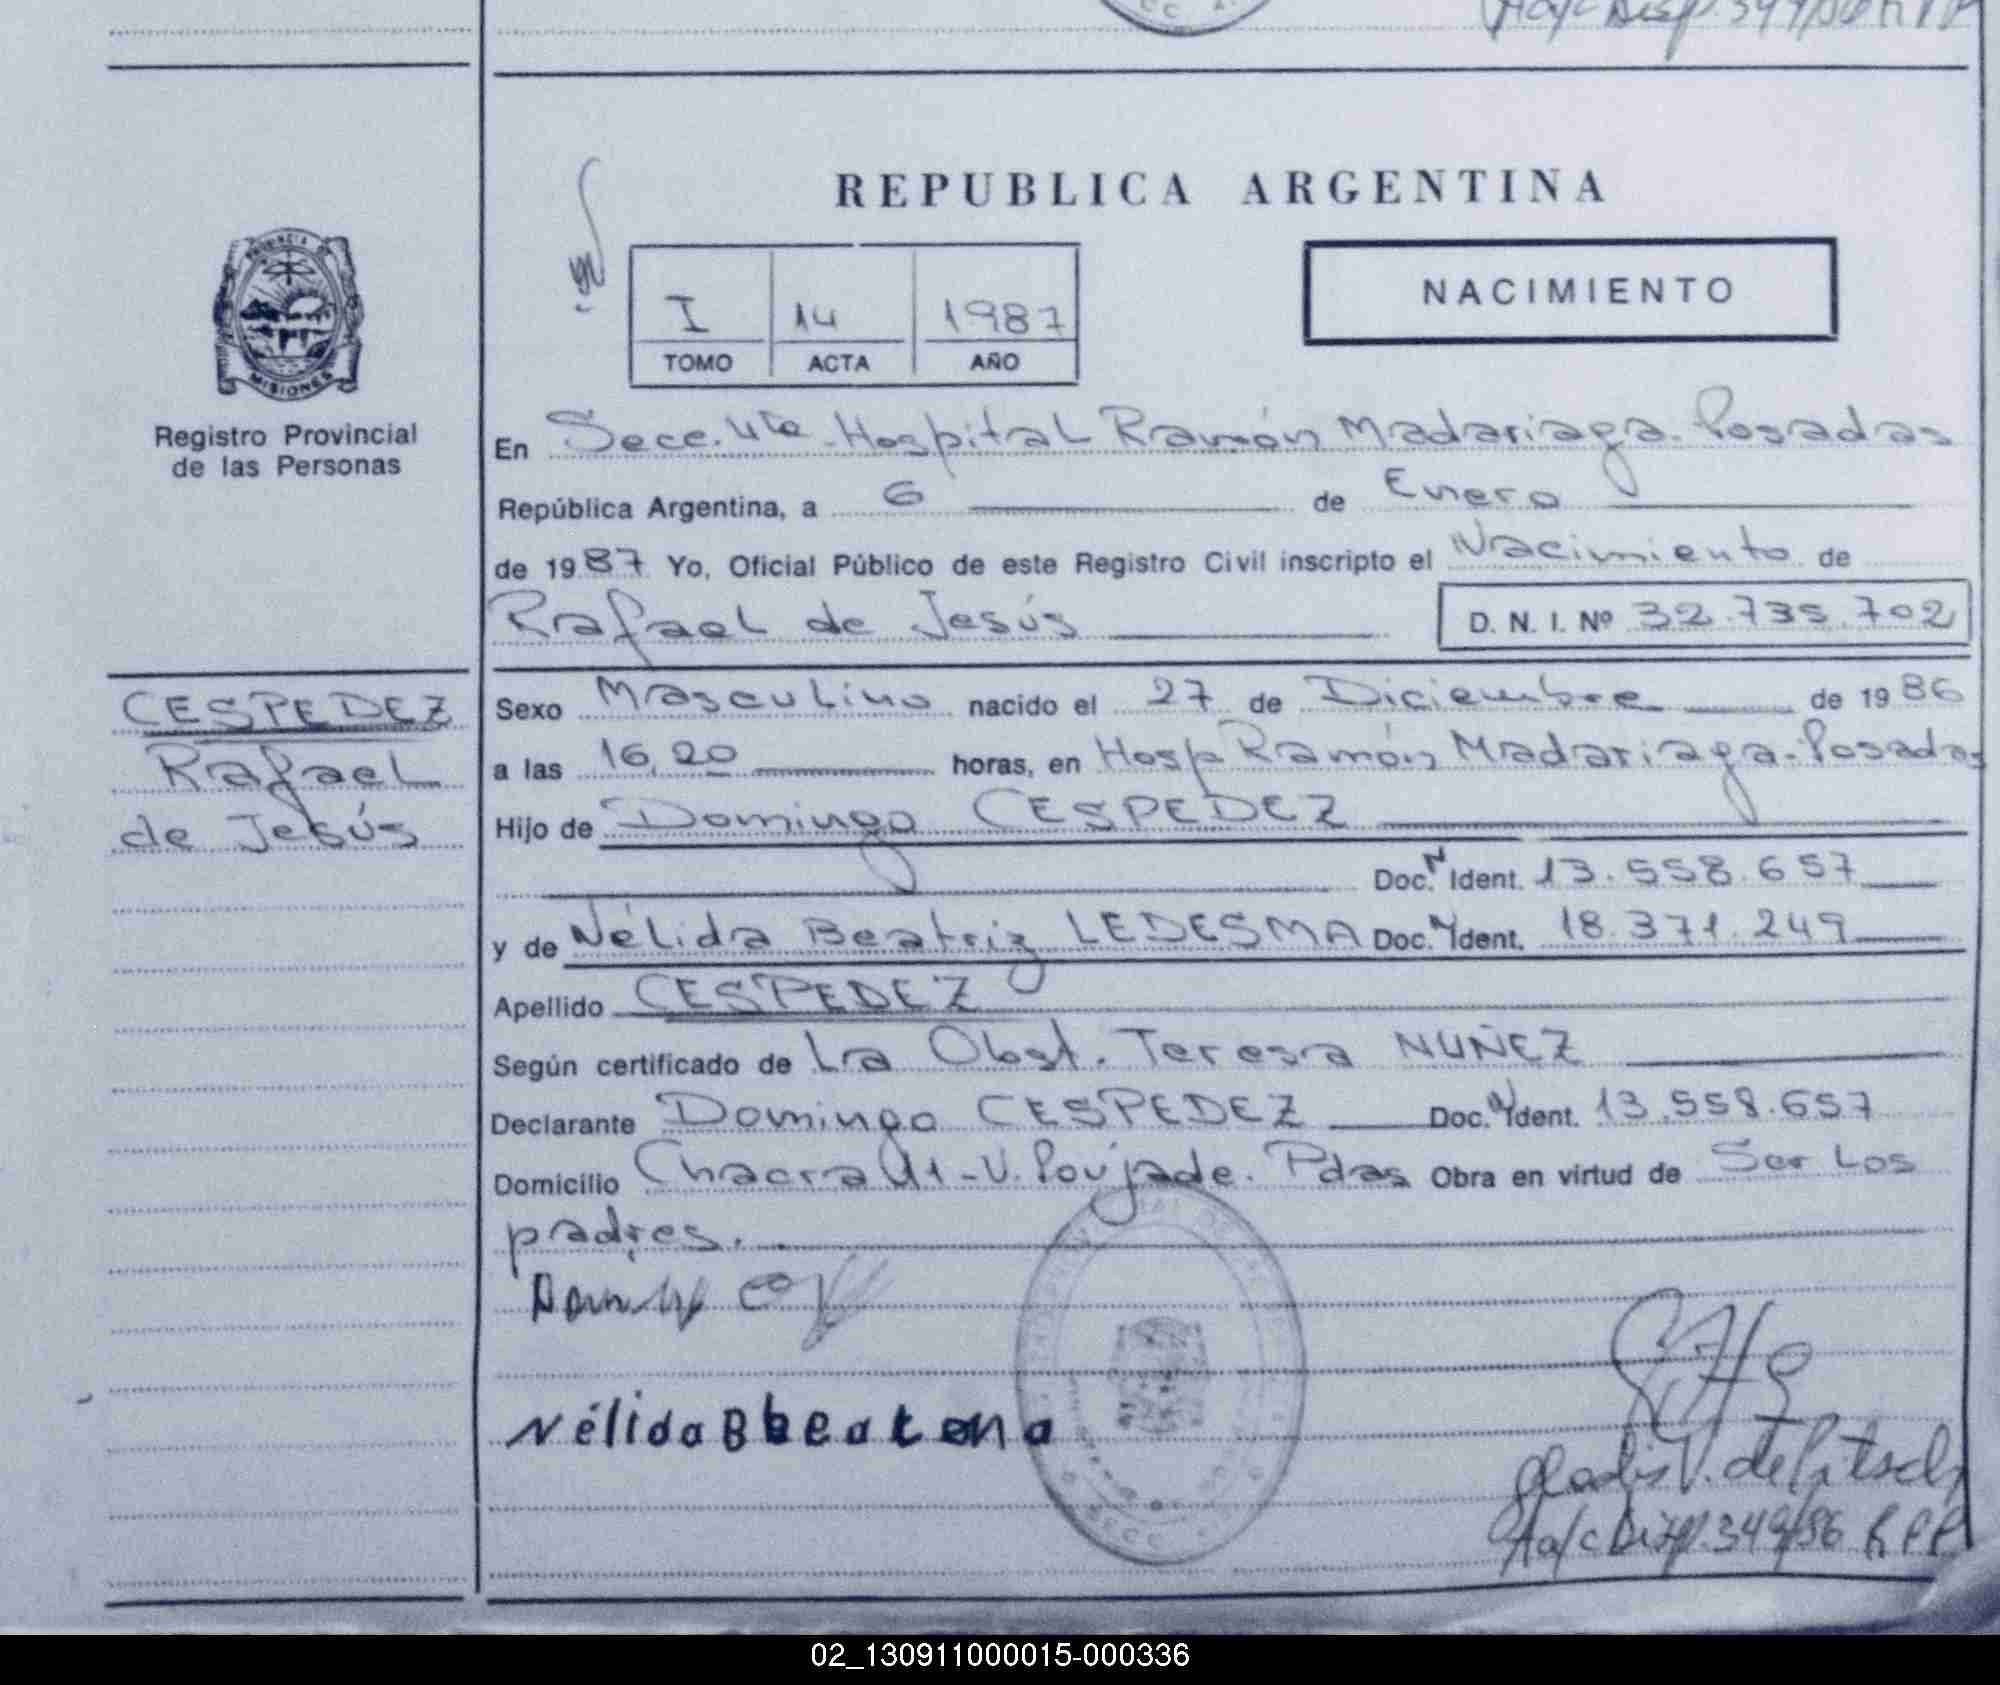 REPUBLICA ARGENTINA
PROVINCIA DE
MISIONES
Registro Provincial
de las Personas
I 14 1987
TOMO ACTA AÑO
NACIMIENTO
En Secc. 4ta. Hospital Ramón Madariaga. Posadas
República Argentina, a 6 de Enero
de 1987 Yo, Oficial Público de este Registro Civil inscripto el Nacimiento de
Rafael de Jesús D. N. I. Nº 32.735.702
CESPEDEZ
Rafael
de Jesús
Sexo Masculino nacido el 27 de Diciembre de 1986
a las 16,20 horas, en Hosp Ramón Madariaga. Posadas
Hijo de Domingo CESPEDEZ
Doc. N Ident. 13.558.657
y de Nélida Beatriz LEDESMA Doc. N Ident. 18.371.249
Apellido CESPEDEZ
Según certificado de La Obst. Teresa NUÑEZ
Declarante Domingo CESPEDEZ Doc. N Ident. 13.558.657
Domicilio Chacra 41-V. Poujade. Pdas Obra en virtud de Ser Los
padres.
Nélida
Gladis V. de
A/c Disp. 349/86 R P P
02_130911000015-000336